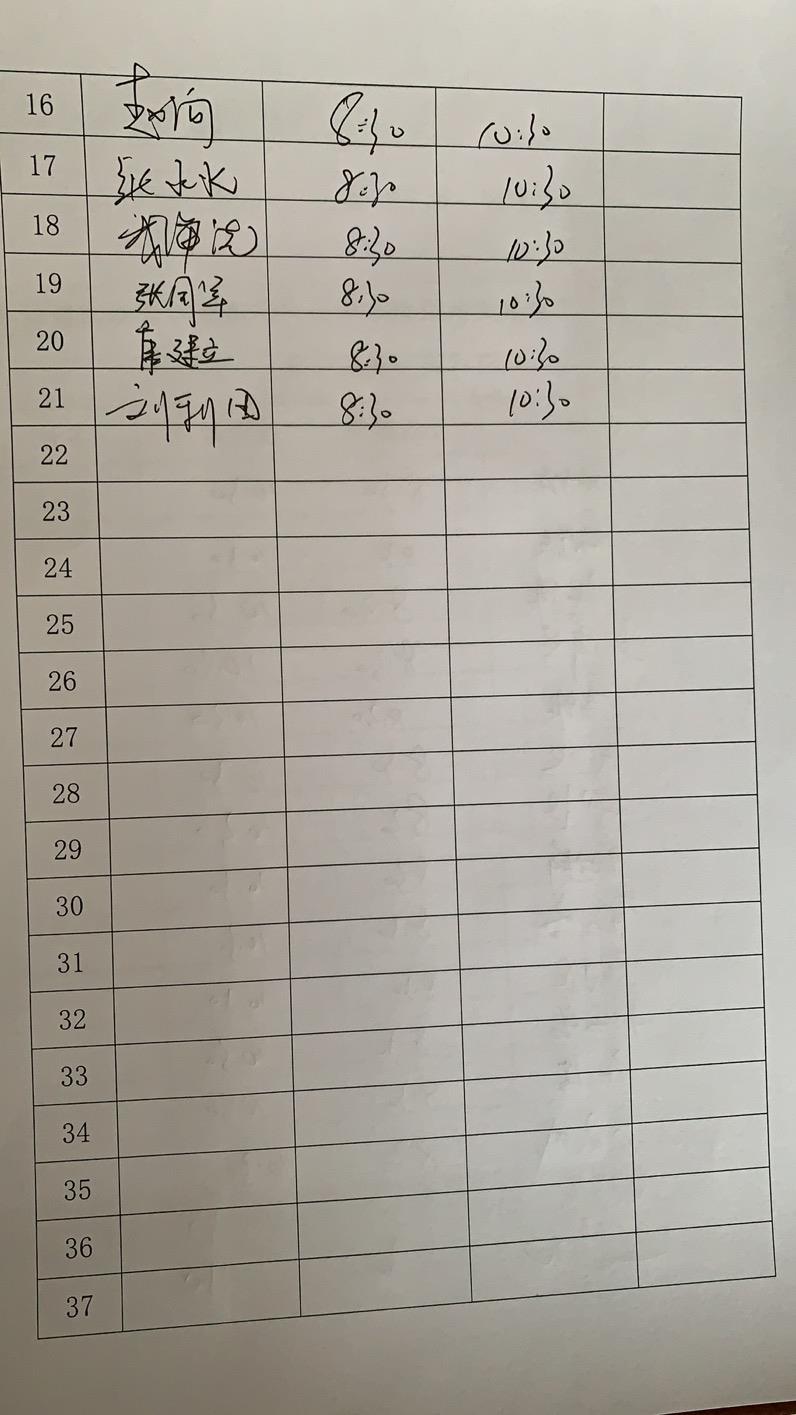 16 8:30 10:30
17 张永水 8:30 10:30
18 8:30 10:30
19 张同军 8:30 10:30
20 建立 8:30 10:30
21 刘利国 8:30 10:30
22
23
24
25
26
27
28
29
30
31
32
33
34
35
36
37